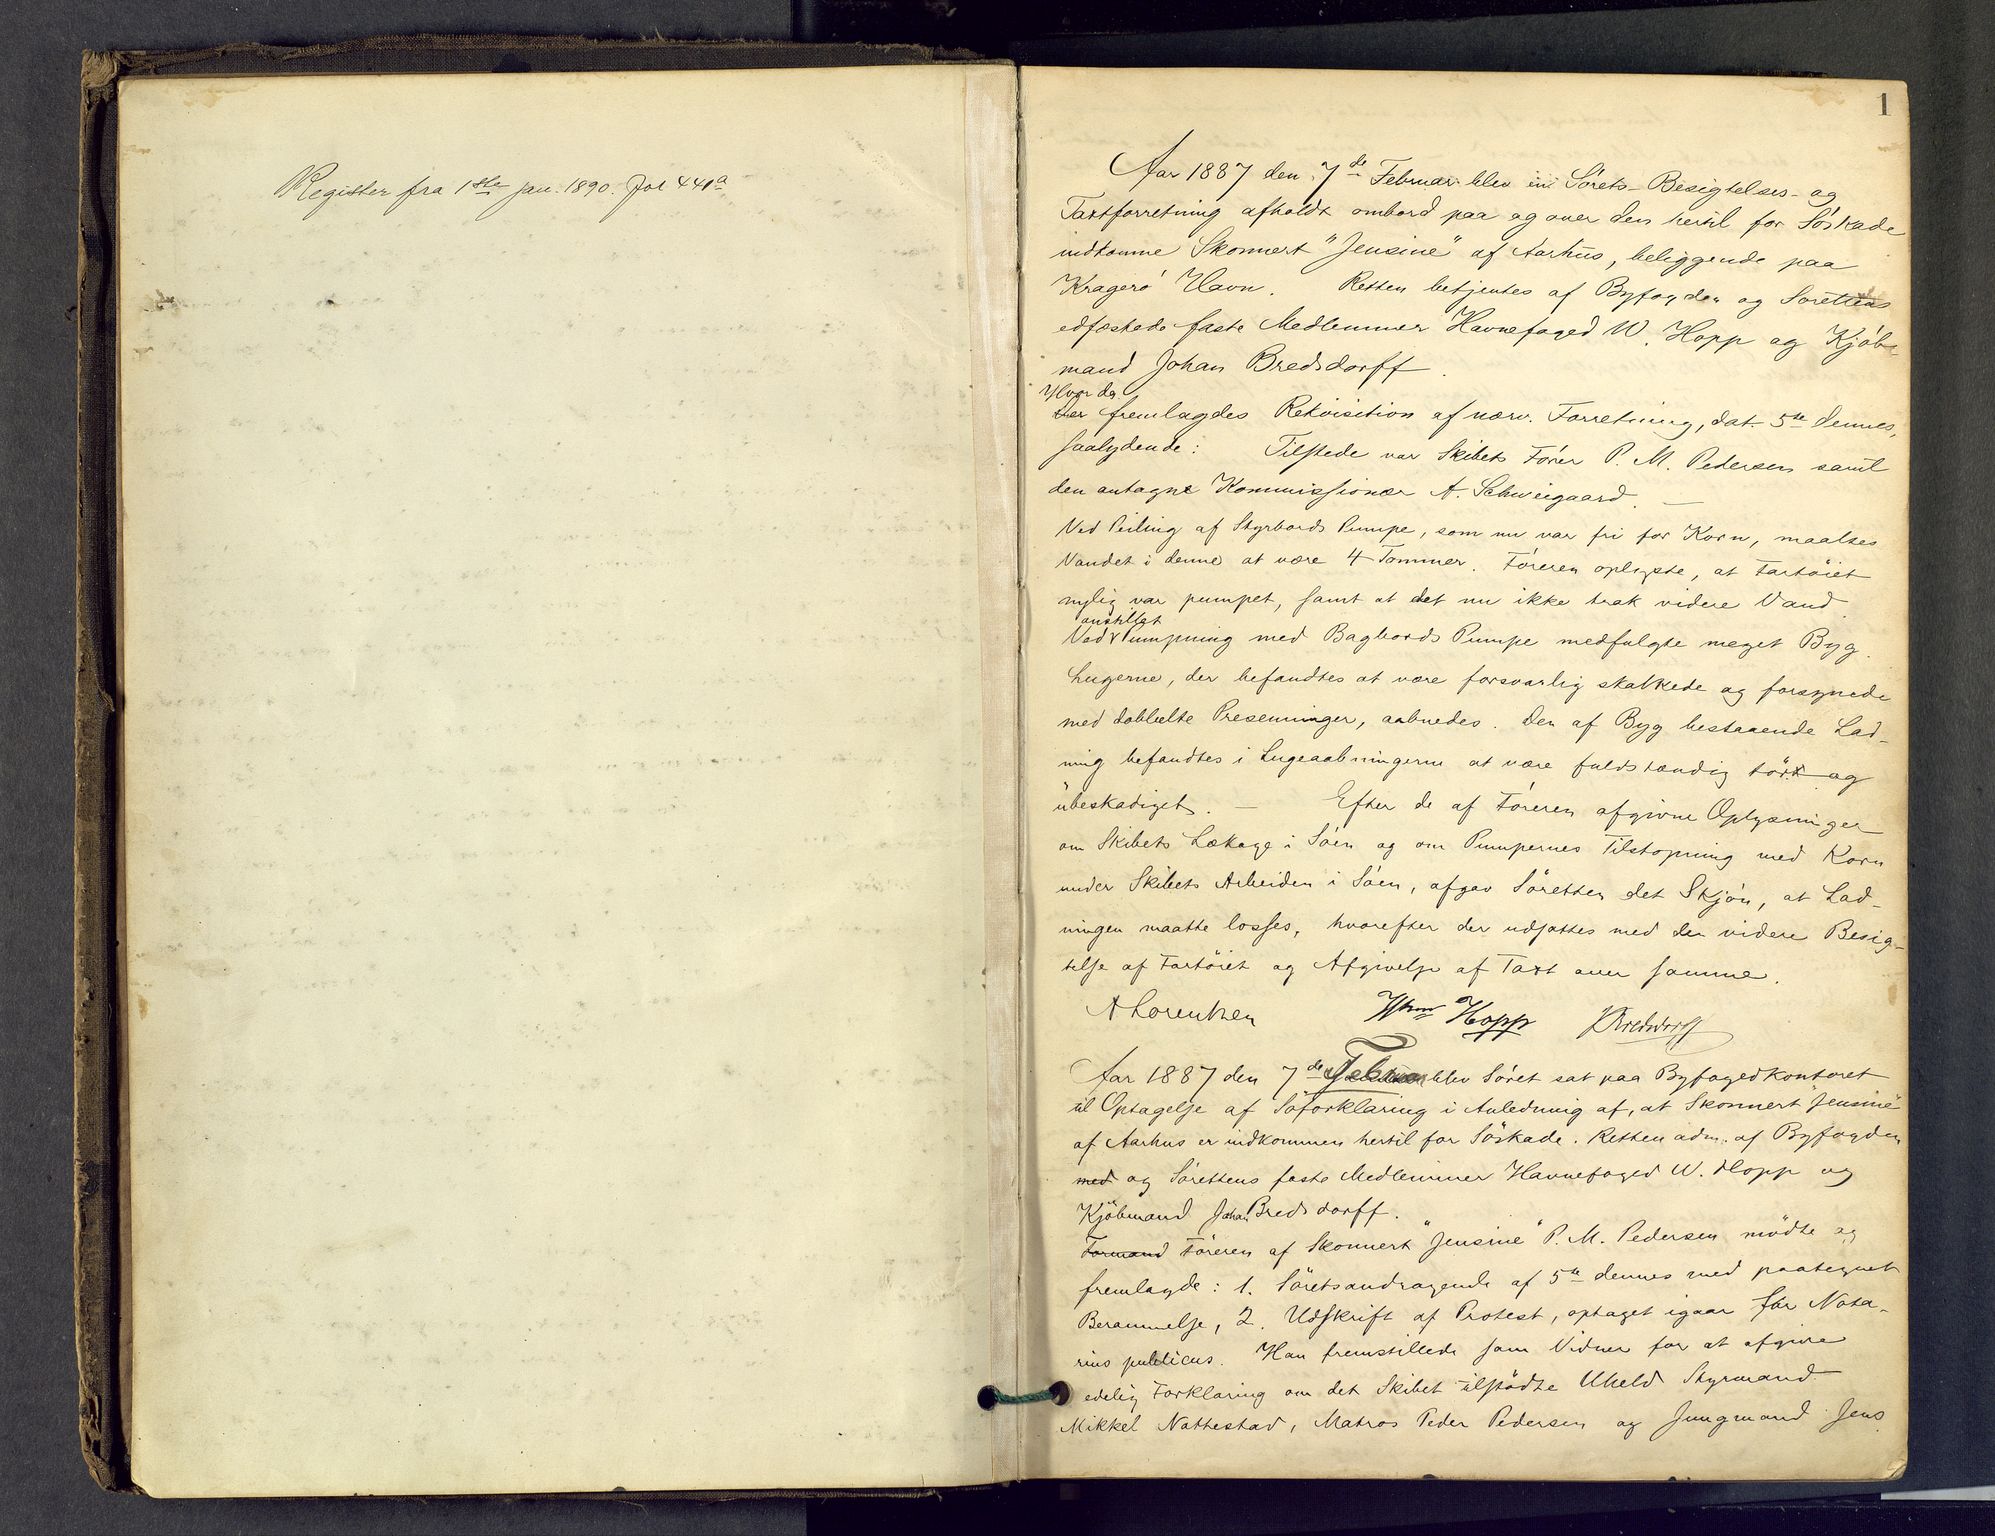 Register fra 1ste jan. 1890. Fol 441a
1
Aar 1887 den 7de Februar blev en Sørets-Besigtelses- og
Taxtforretning afholdt ombord paa og over den hertil for Søskade
indkomne Skonnert "Jensine" af Aarhus, beliggende paa
Kragerø Havn. Retten betjentes af Byfogden og Sørettens
edfæstede faste Medlemmer Havnefoged W. Hopp og Kjøb-
mand Johan Bredsdorff.
Hvor da
Der fremlagdes Rekvisition af nærv. Forretning, dat. 5te dennes,
saalydende: Tilstede var Skibets Fører P. M. Pedersen samt
den antagne Kommissionær A. Schweigaard. —
Ved Peiling af Styrbords Pumpe, som nu var fri for Korn, maaltes
Vandet i denne at være 4 Tommer. Føreren oplyste, at Fartøiet
nylig var pumpet, samt at det nu ikke trak videre Vand
anstillet
Ved Pumpning med Bagbords Pumpe medfulgte meget Byg.
Lugerne, der befandtes at være forsvarlig skalkede og forsynede
med dobbelte Presenninger, aabnedes. Den af Byg bestaaende Lad-
ning befandtes i Lugeaabningerne at være fuldstændig tört og
ubeskadiget. — Efter de af Føreren afgivne Oplysninger
om Skibets Lækage i Søen og om Pumpernes Tilstopning med Korn
under Skibets Arbeiden i Søen, afgav Søretten det Skjøn, at Lad-
ningen maatte losses, hvorefter der udsattes med den videre Besig-
telse af Fartøiet og Afgivelse af Taxt over samme.
A Lorentzen Wm Hopp J Bredsdorff
Aar 1887 den 7de Februar blev Søret sat paa Byfogedkontoret
til Optagelse af Søforklaring i Anledning af, at Skonnert "Jensine"
af Aarhus er indkommen hertil for Søskade. Retten adm. af Byfogden
med og Sørettens faste Medlemmer Havnefoged W. Hopp og
Kjøbmand Johan Bredsdorff.
Formand Føreren af Skonnert "Jensine" P. M. Pedersen mødte og
fremlagde: 1. Søretsandragende af 5te dennes med paategnet
Berammelse, 2. Udskrift af Protest, optaget igaar for Nota-
rius publicus. Han fremstillede som Vidner for at afgive
edelig Forklaring om det Skibet tilstødte Uheld Styrmand
Mikkel Nattestad, Matros Peder Pedersen og Jungmand Jens